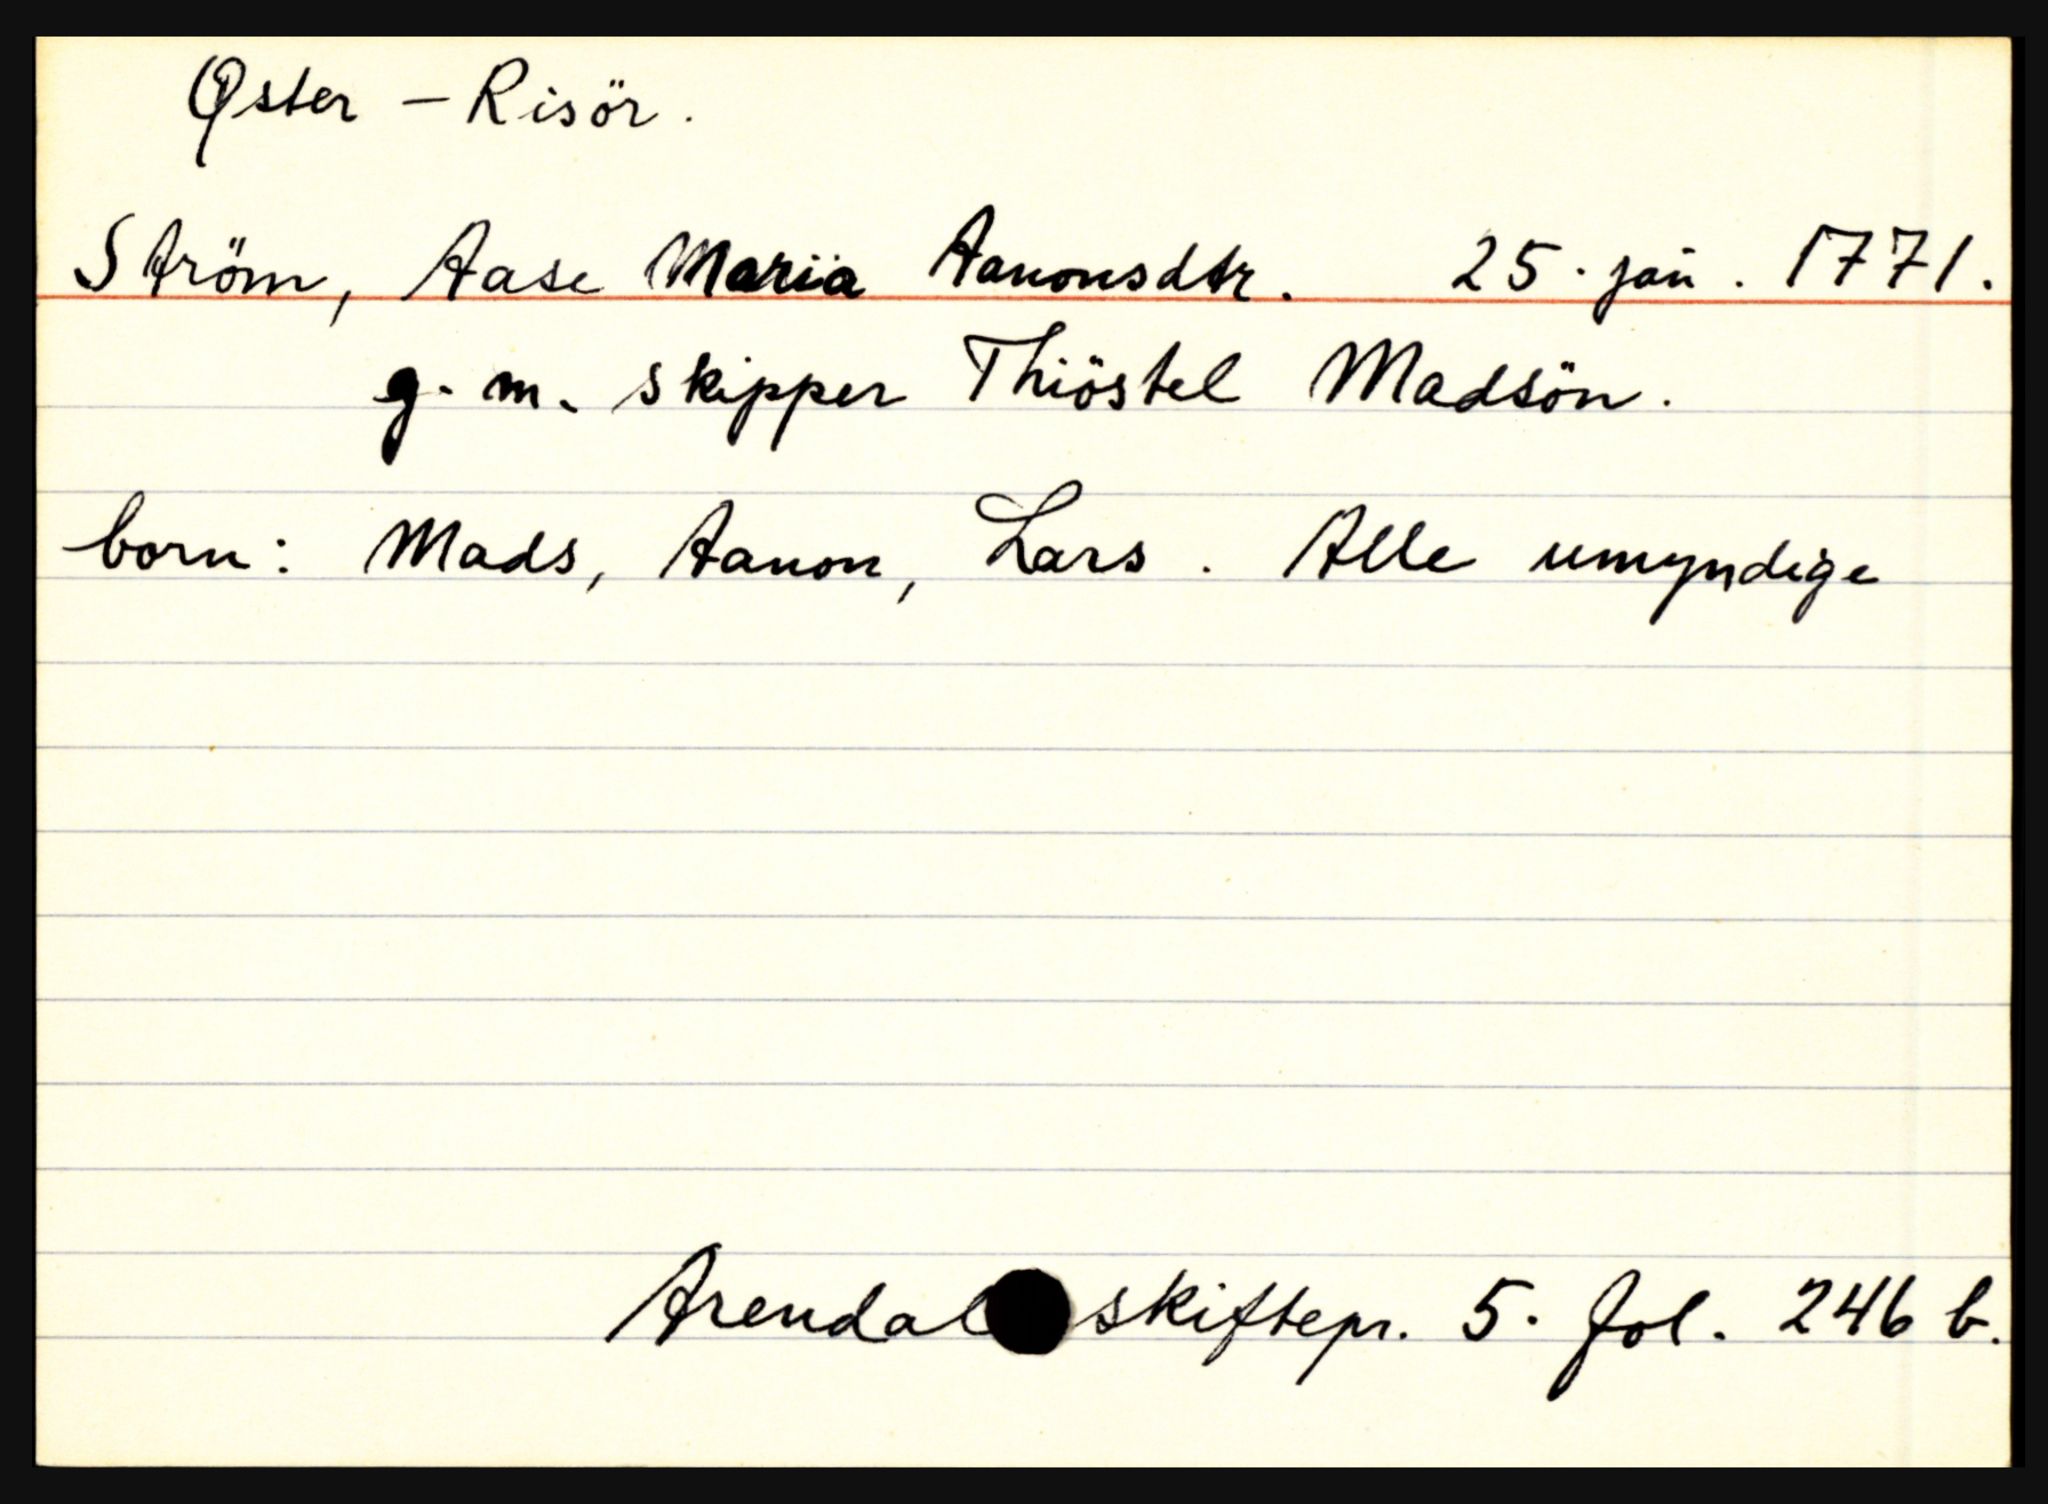 Øster - Risör.
Ström, Aase Maria Aanonsdtr. 25. jan. 1771.
g. m. skipper Thiöstel Madsön.
born: Mads, Aanon, Lars. Alle umyndige
Arendal skiftepr. 5. fol. 246 b.